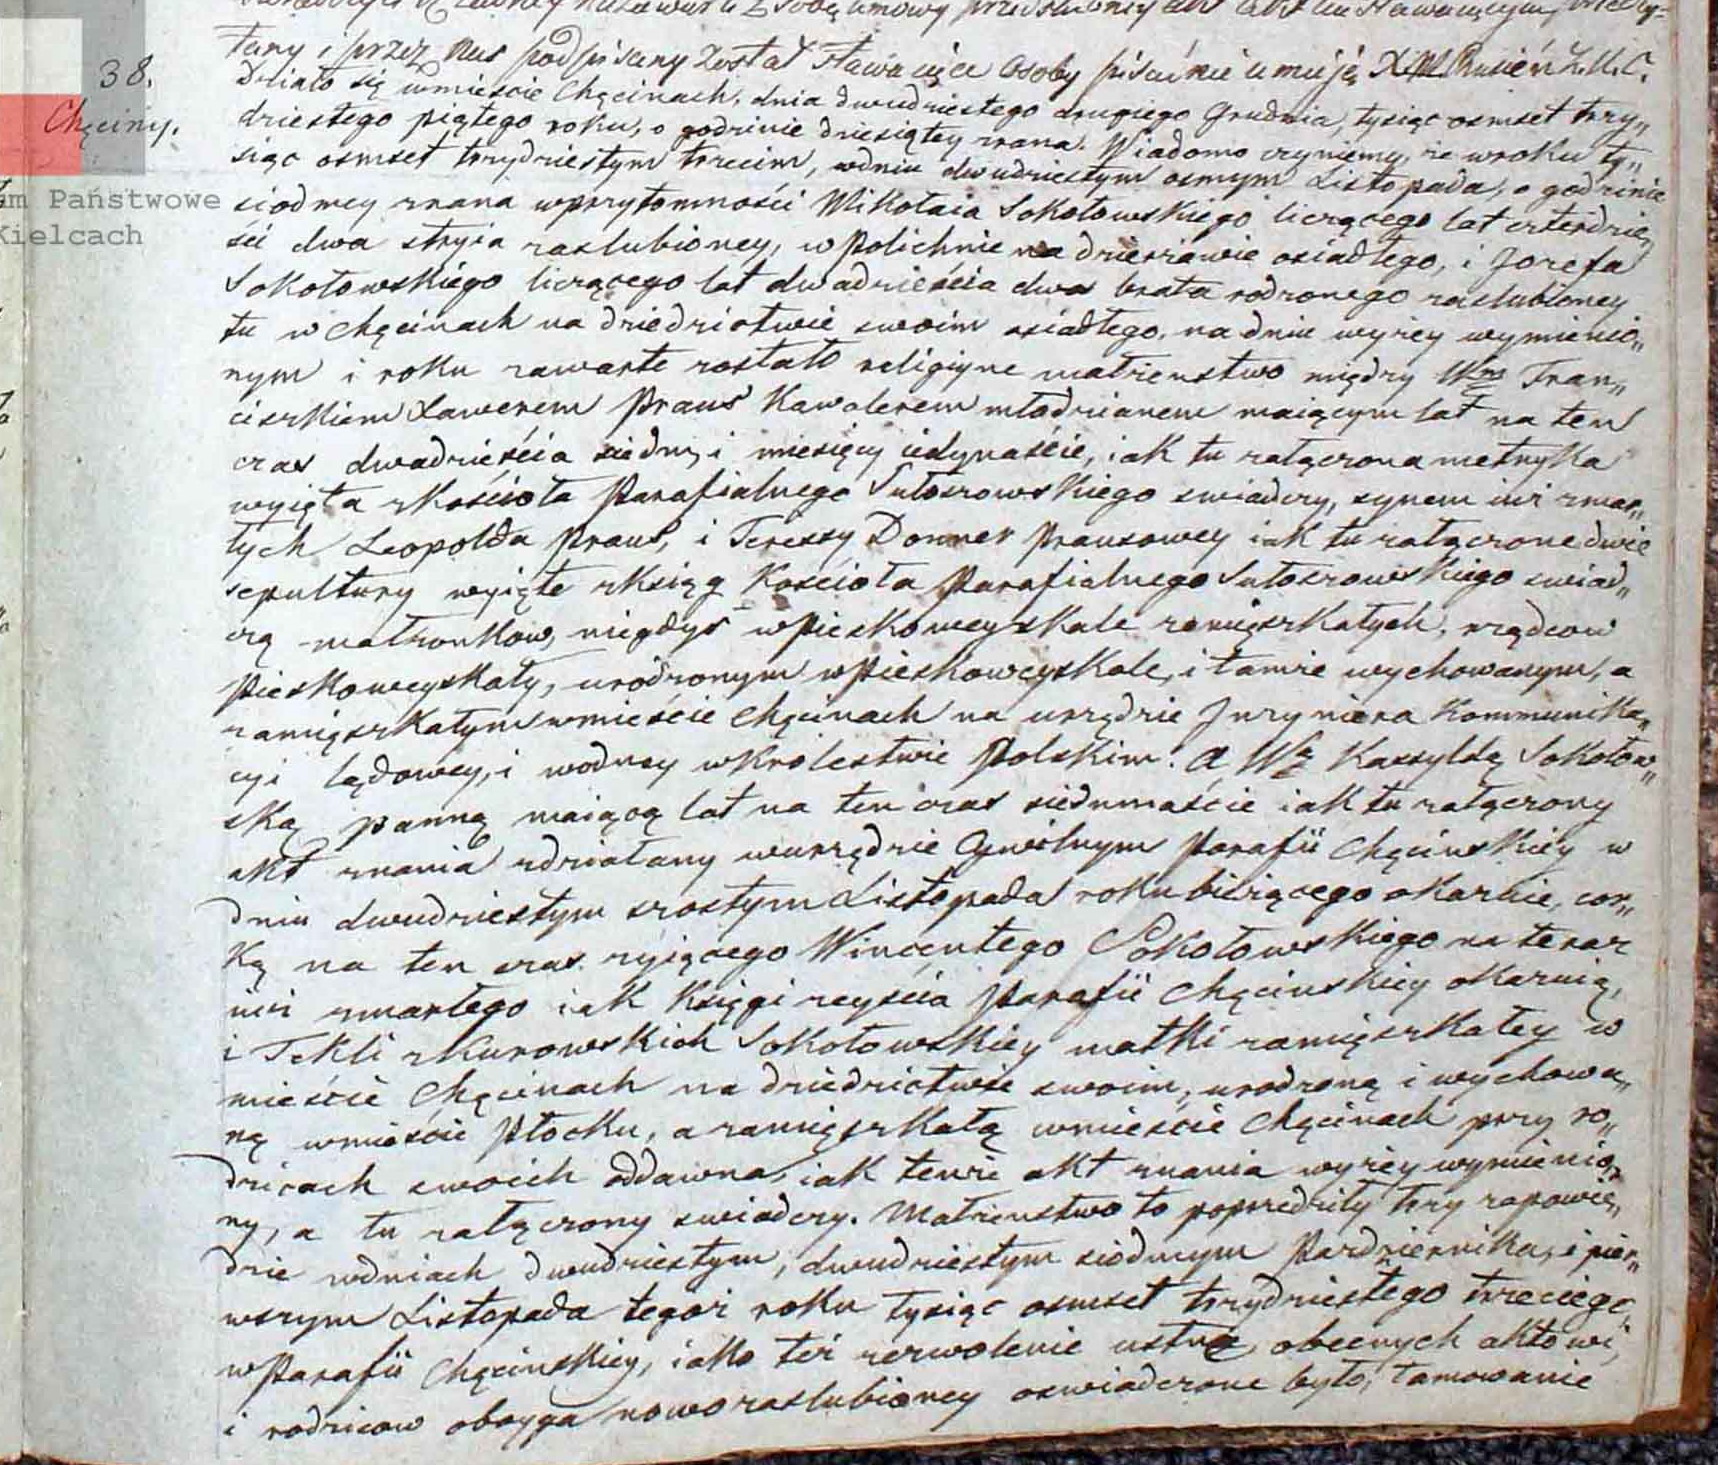 tany, przez Nas podpisany został stawaiące Osoby pisać nie umieją
38.
Chęciny.
Działo się wmieście Chęcinach, dnia dwudziestego drugiego Grudnia, tysiąc osmset trzy„
dziestego piątego roku, o godzinie dziesiątey zrana. Wiadomo czyniemy, że wroku ty„
siąc osmset trzydziestym trzecim, wdniu dwudziestym osmym Listopada, o godzinie
siodmey zrana wprzytomności Mikołaia Sokołowskiego liczącego lat czterdzie„
ści dwa stryia zaslubioney, w Polichnie na dzierzawie osiadłego, i Jozefa
Sokołowskiego liczącego lat dwadzieścia dwa brata rodzonego zaslubioney
tu w Chęcinach na dziedzictwie swoim osiadłego, na dniu wyżey wymienio„
nym i roku zawarte zostało religiyne małżeństwo między Wm Fran„
ciszkiem Xawerem Praus Kawalerem młodzianem maiącym lat na ten
czas dwadzieścia siedm, i miesięcy iedynaście, iak tu załączona metryka
wyięta zkościoła Parafialnego Sułoszowskiego swiadczy, synem iuż zmar„
łych Leopolda Praus, i Teressy Donner Prausowey iak tu załączone dwie
sepultury wyięte zksiąg Kościoła Parafialnego Sułoszowskiego swiad„
czą małżonkow, niegdyś wPieskoweyskale zamięszkałych, rządcow
Pieskoweyskały, urodzonym wPieskoweyskale, i tamże wychowanym, a
zamięszkałym wmieście Chęcinach na urzędzie Inzyniera Kommunika„
cyi lądowey, i wodney wKrolestwie Polskim. a Wą Kassyldą Sokołow„
ską panną maiącą lat na ten czas siedmnaście iak tu załączony
akt znania zdziałany wurzędzie Cywilnym Parafii Chęcińskiey w
dniu dwudziestym szostym Listopada roku bieżącego okazuie, cor„
ką na ten czas żyiącego Wincentego Sokołowskiego na teraz
iuż zmarłego iak Księgi zeyścia Parafii Chęcinskiey okazuią,
i Tekli zKurowskich Sokołowskiey matki zamięszkałey w
mieście Chęcinach na dziedzictwie swoim, urodzoną i wychowa„
ną wmieście Płocku, a zamięszkałą wmieście Chęcinach przy ro„
dzicach swoich oddawna, iak tenże akt znania wyżey wymienio„
ny, a tu załączony swiadczy. Małżenstwo to poprzedziły trzy zapowie„
dzie wdniach dwudziestym, dwudziestym siodmym Pazdziernika, i pier„
wszym Listopada tegoż roku tysiąc osmset trzydziestego trzeciego,
wParafii Chęcinskiey, iako też zezwolenie ustne obecnych aktowi,
i rodzicow oboyga nowozaslubioney oswiadczone było, tamowanie